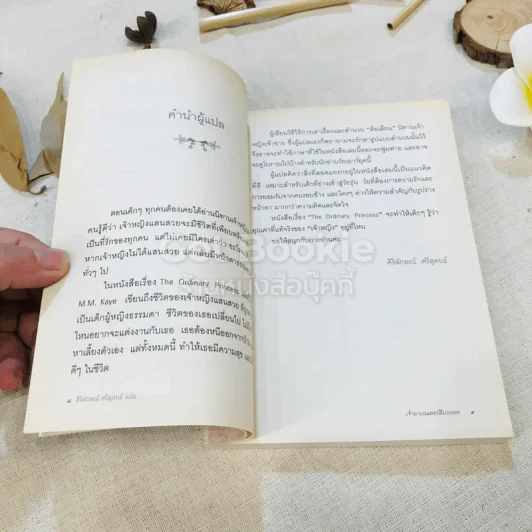 คำนำผู้แปล
ตอนเด็กๆ ทุกคนต้องเคยได้อ่านนิทานเจ้าหญิ
คนรู้ดีว่า เจ้าหญิงแสนสวยจะมีชีวิตที่เพียบพร้อม
เป็นที่รักของทุกคน แต่ไม่เคยมีใครเล่าว่า จะ
หากเจ้าหญิงไม่ได้แสนสวย แต่กลับมีหน้าตา
ทั่วๆ ไป
ในหนังสือเรื่อง The Ordinary Princess
M.M. Kaye เขียนถึงชีวิตของเจ้าหญิงแสนสวย
เป็นเด็กผู้หญิงธรรมดา ชีวิตของเธอเปลี่ยนไป
ไหนอยากจะแต่งงานกับเธอ เธอต้องหนีออกจาก
หาเลี้ยงตัวเอง แต่ทั้งหมดนี้ ทำให้เธอมีความสุข
ดีๆ ในชีวิต
๘ ศิริลักษณ์ ศรีสุคนธ์ แปล
ผู้เขียนใช้วิธีการเล่าเรื่องและสำนวน "ล้อเลียน" นิทานเจ้า
หญิงเจ้าชาย ซึ่งผู้แปลเองก็พยายามจะรักษารูปแบบสำนวนนั้นไว้
จึงอาจจะทำให้ภาษาที่ใช้ในหนังสือเล่มนี้ออกจะฟูมฟาย และอาจ
จะดูโบราณไปบ้างสำหรับนักอ่านวัยเยาว์ยุคนี้
ผู้แปลคิดว่าสิ่งที่สอดแทรกอยู่ในหนังสือเล่มนี้เป็นแนวคิด
ที่ดี เหมาะสำหรับเด็กที่ย่างเข้าสู่วัยรุ่น วัยที่ต้องการความรักและ
การยอมรับจากคนรอบข้าง และใครๆ ต่างให้ความสำคัญกับรูปร่าง
หน้าตา มากกว่าความคิดและจิตใจ
หนังสือเรื่อง "The Ordinary Princess" จะทำให้เด็กๆ รู้ว่า
คุณค่าที่แท้จริงของ "เจ้าหญิง" อยู่ที่ไหน
ขอให้สนุกกับการอ่านค่ะ
ศิริลักษณ์ ศรีสุคนธ์
๙
Bookie
ร้านหนังสือบุ๊คกี้